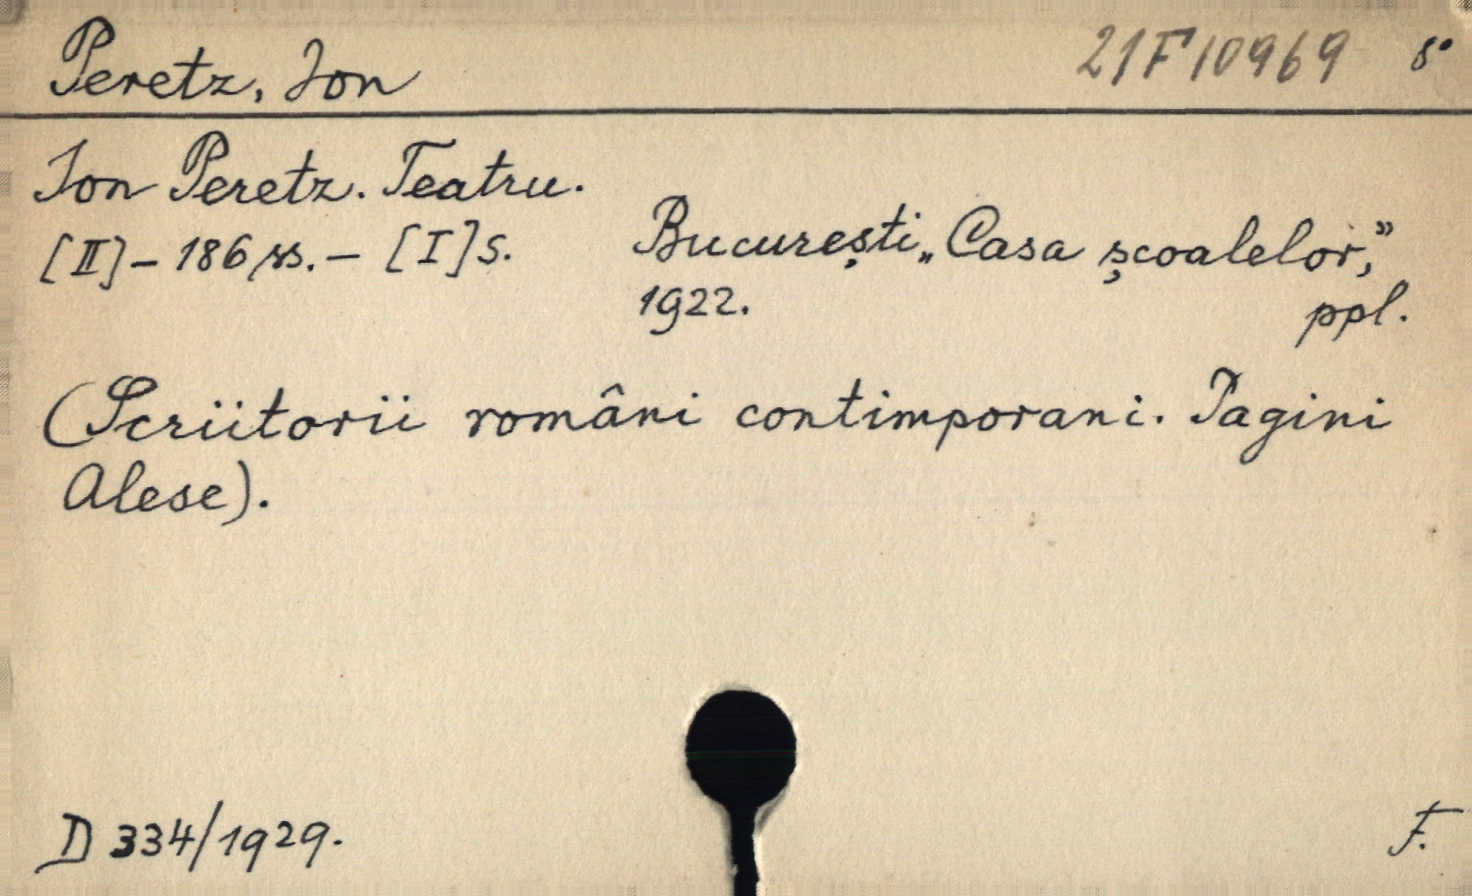 Peretz, Ion 21F10969 8°
Ion Peretz. Teatru.
[II] – 186 ss. – [I] s. București „Casa școalelor,”
1922. ppl.
(Scriitorii români contimporani. Pagini
Alese).
D 334/1929. F.